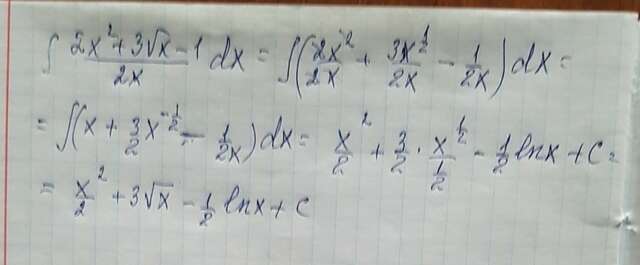 ∫ (2x² + 3√x − 1)/(2x) dx = ∫(2x²/2x + 3x^(1/2)/2x − 1/2x) dx =
= ∫(x + 3/2 x^(−1/2) − 1/2x) dx = x²/2 + 3/2 · x^(1/2)/(1/2) − 1/2 lnx + C =
= x²/2 + 3√x − 1/2 lnx + C